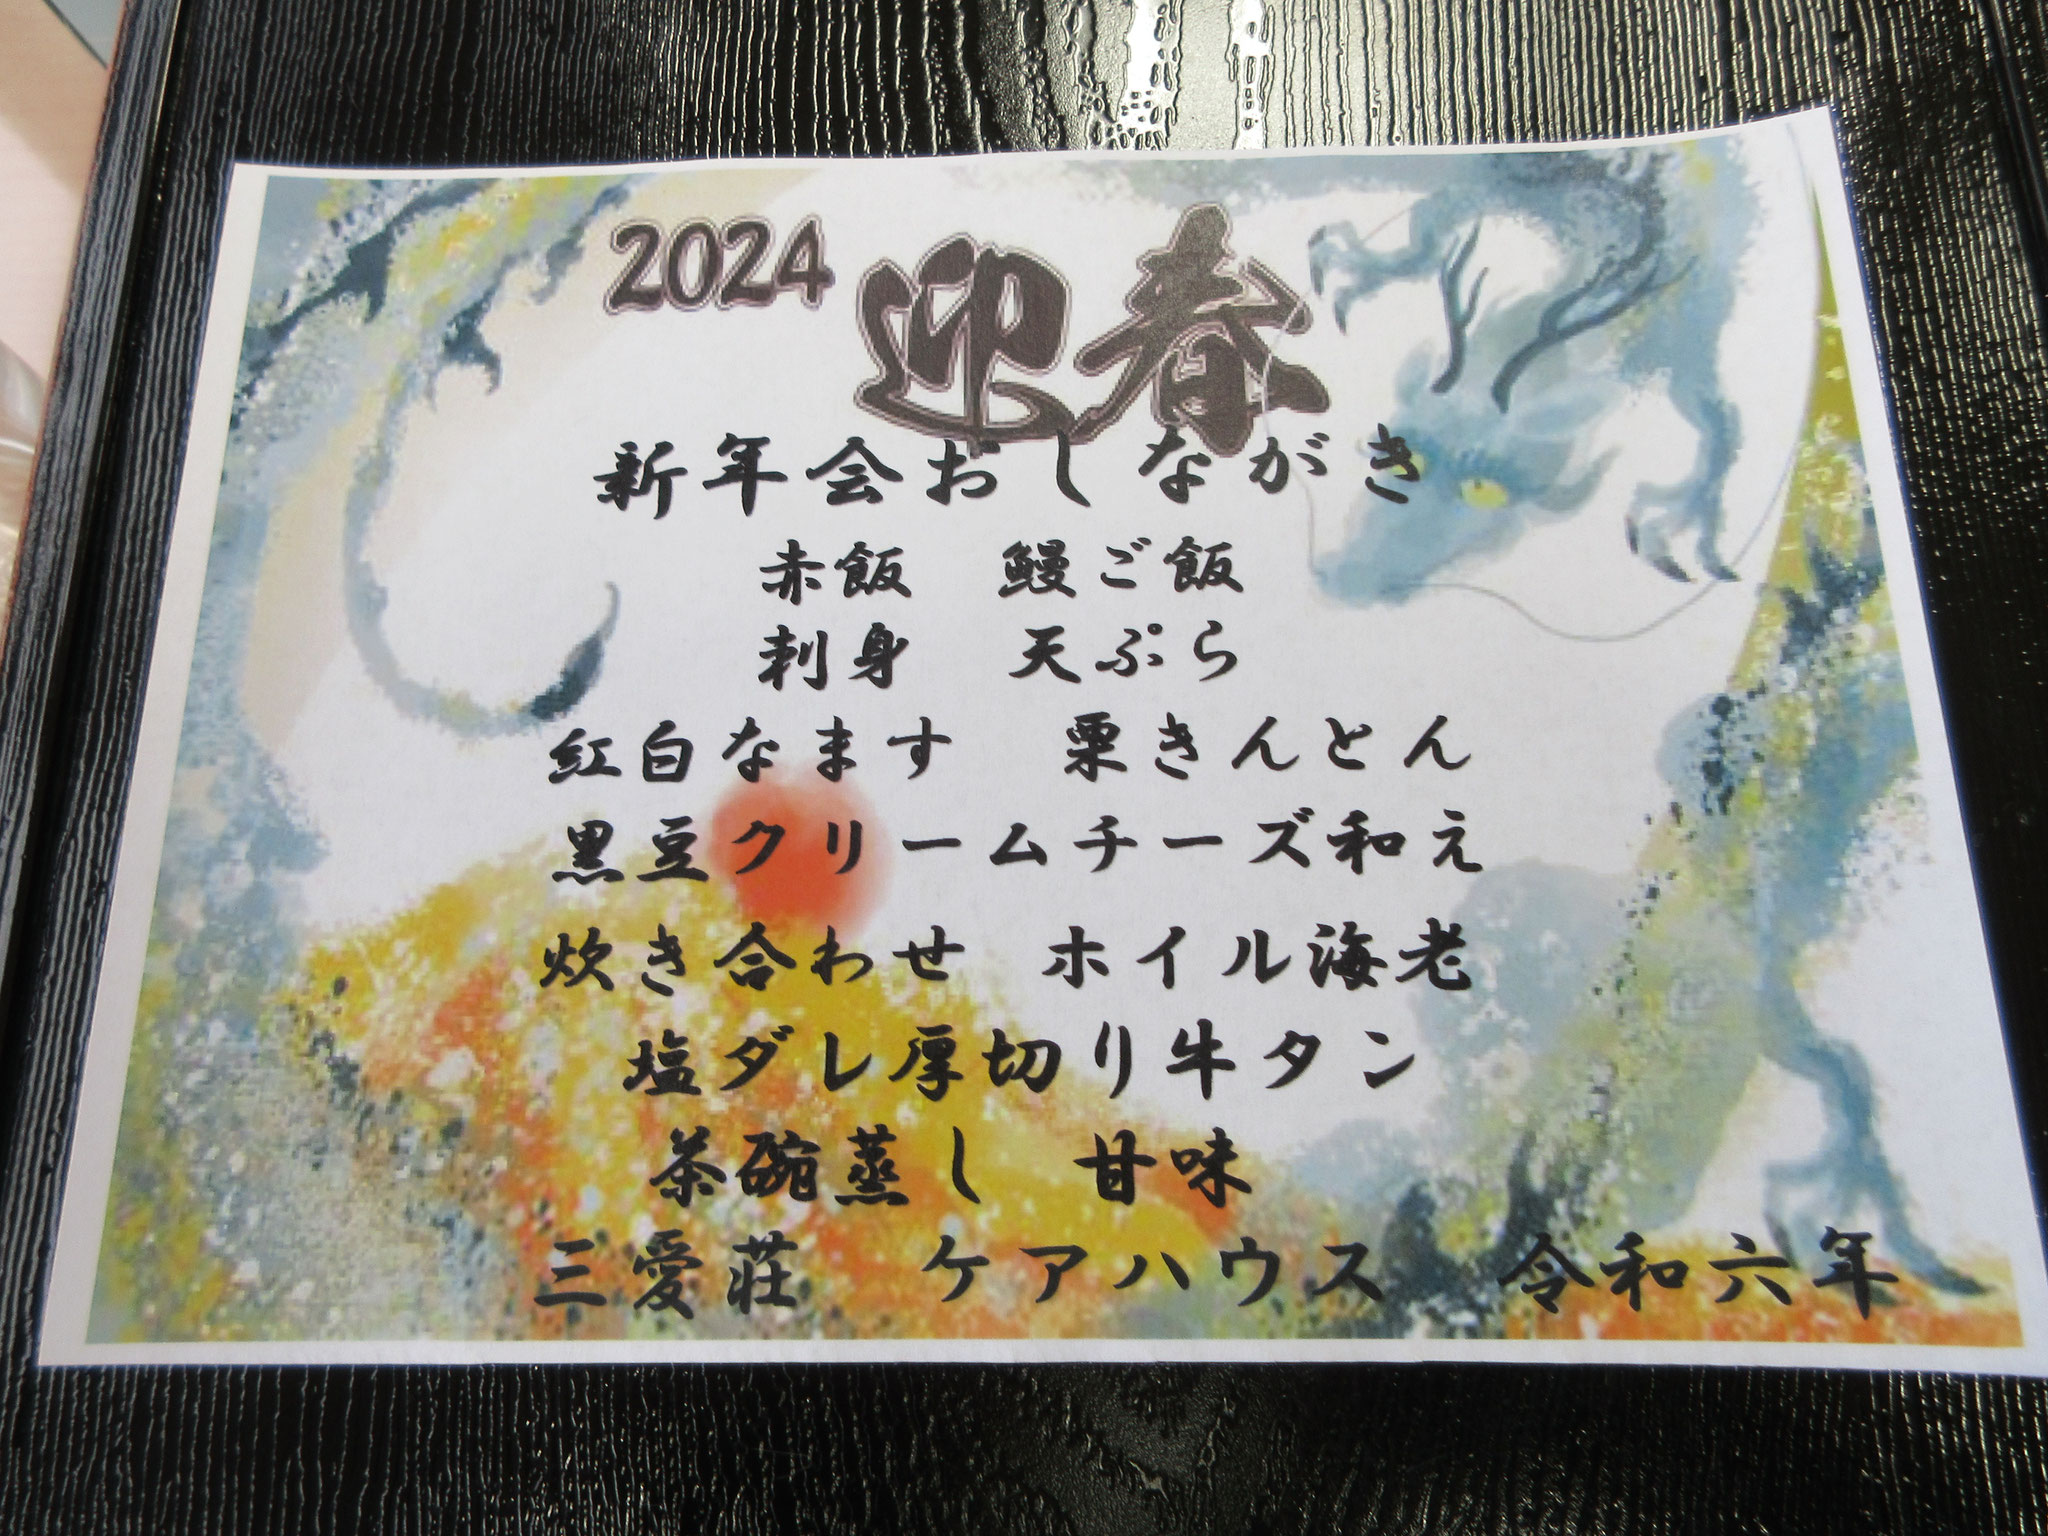 2024 迎春
新年会おしながき
赤飯　鰻ご飯
刺身　天ぷら
紅白なます　栗きんとん
黒豆クリームチーズ和え
炊き合わせ　ホイル海老
塩ダレ厚切り牛タン
茶碗蒸し　甘味
三愛荘　ケアハウス　令和六年